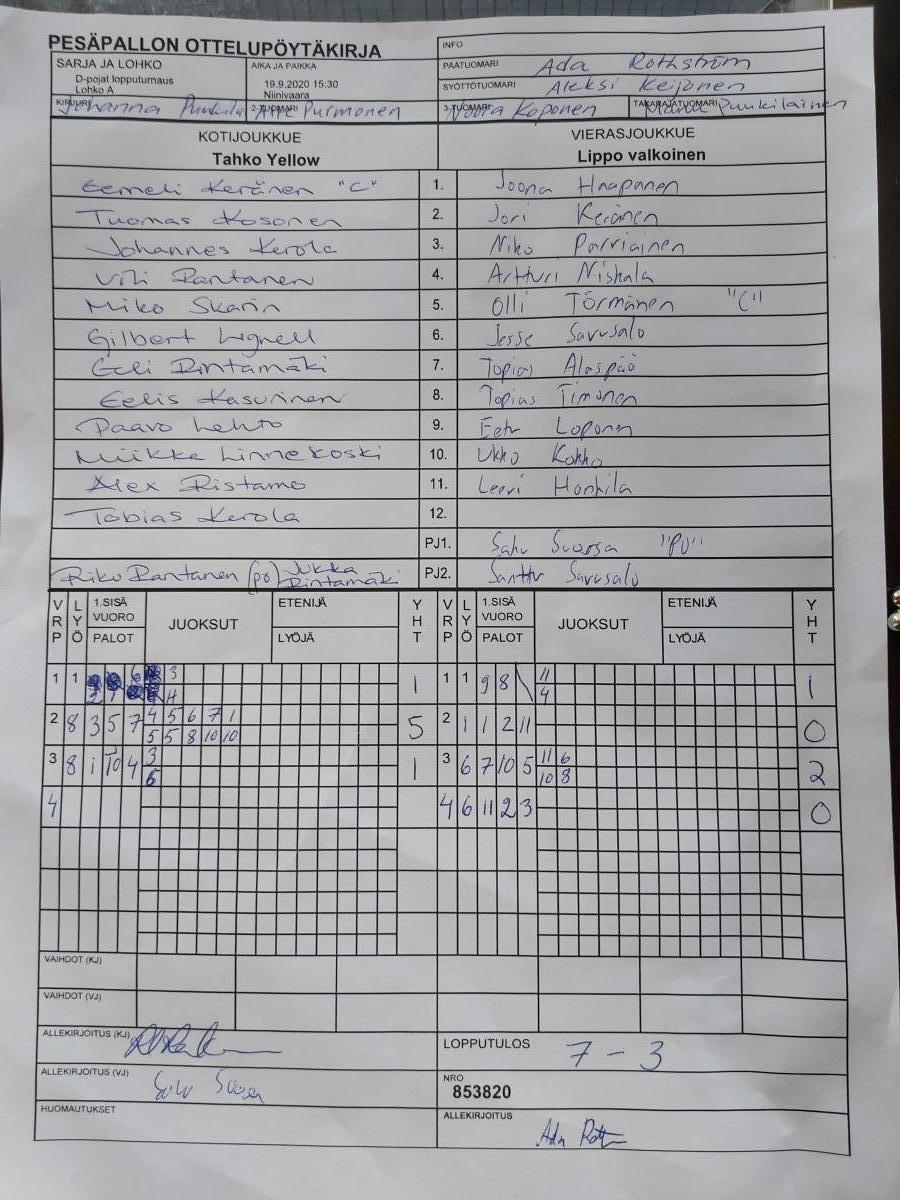 PESÄPALLON OTTELUPÖYTÄKIRJA
INFO
SARJA JA LOHKO
D-pojat lopputurnaus
Lohko A
AIKA JA PAIKKA
19.9.2020 15:30
Niinivaara
PÄÄTUOMARI Ada Rothström
SYÖTTÖTUOMARI Aleksi Keijonen
KIRJURI Johanna
2-TUOMARI Purmonen
3-TUOMARI Noora Koponen
TAKARAJATUOMARI Puukilainen
KOTIJOUKKUE
Tahko Yellow
VIERASJOUKKUE
Lippo valkoinen
Eemeli Keränen "C" 1. Joona Haapanen
Tuomas Kosonen 2. Jori Keränen
Johannes Kerola 3. Niko Parviainen
Vili Rantanen 4. Artturi Niskala
Miko Skarin 5. Olli Törmänen "C"
Gilbert Lignell 6. Jesse Savusalo
Eeli Rintamäki 7. Topias Alaspää
Eelis Kasurinen 8. Topias Timonen
Paavo Lehto 9. Eetu
Miikka Linnekoski 10. Ukko Kokko
Alex Ristamo 11. Leevi Honkila
Tobias Kerola 12.
PJ1. "PJ"
Riko Rantanen (pö) Jukka Rintamäki PJ2. Santtu Savusalo
VRP LYÖ 1.SISÄ VUORO PALOT JUOKSUT ETENIJÄ LYÖJÄ YHT VRP LYÖ 1.SISÄ VUORO PALOT JUOKSUT ETENIJÄ LYÖJÄ YHT
1 1 2 1 3 4 1 1 1 9 8 \ 11 4 1
2 8 3 5 7 4 5 6 7 1 5 2 1 1 2 11 0
5 5 8 10 10
3 8 1 10 4 3 6 1 3 6 7 10 5 11 6 2
10 8
4 4 6 11 2 3 0
VAIHDOT (KJ)
VAIHDOT (VJ)
ALLEKIRJOITUS (KJ)
LOPPUTULOS 7 - 3
ALLEKIRJOITUS (VJ)
NRO
853820
HUOMAUTUKSET
ALLEKIRJOITUS